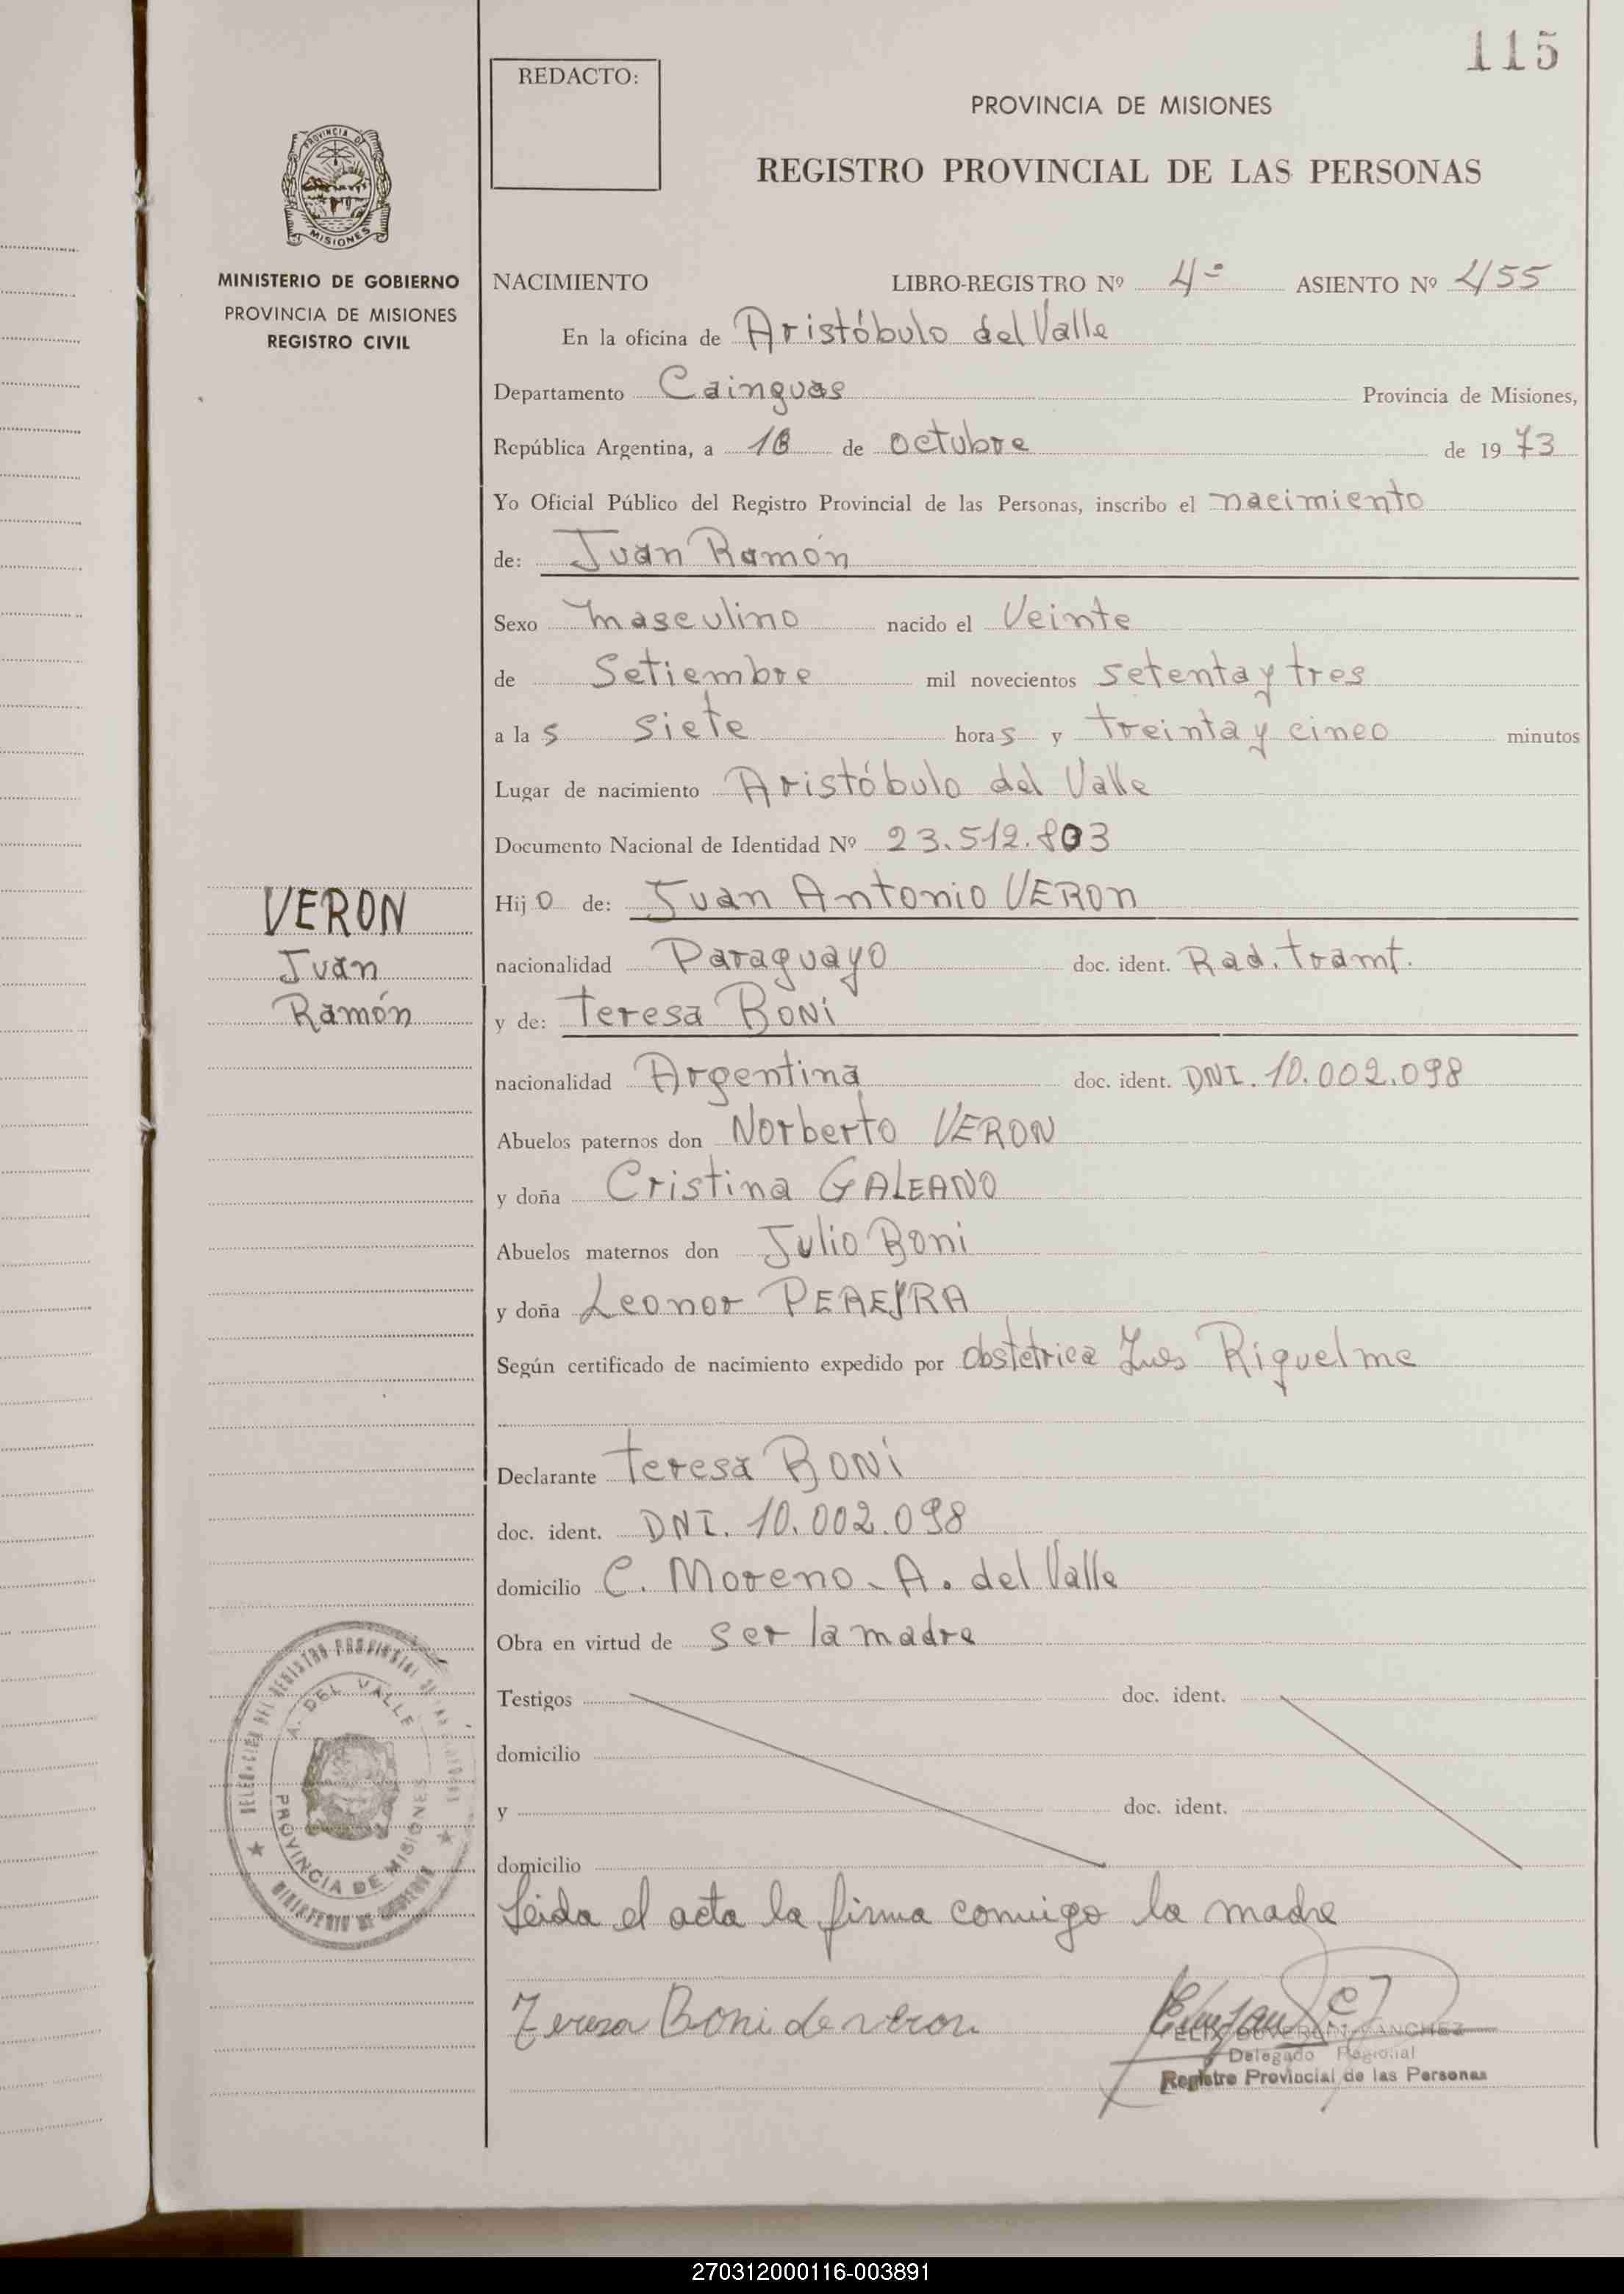 115
REDACTO:
PROVINCIA DE MISIONES
REGISTRO PROVINCIAL DE LAS PERSONAS
PROVINCIA DE
MISIONES
MINISTERIO DE GOBIERNO
PROVINCIA DE MISIONES
REGISTRO CIVIL
NACIMIENTO LIBRO-REGISTRO Nº 4º ASIENTO Nº 455
En la oficina de Aristóbulo del Valle
Departamento Cainguas Provincia de Misiones,
República Argentina, a de octubre de 1973
Yo Oficial Público del Registro Provincial de las Personas, inscribo el nacimiento
de: Juan Ramón
Sexo masculino nacido el Veinte
de Setiembre mil novecientos setenta y tres
a las siete horas y treinta y cinco minutos
Lugar de nacimiento Aristóbulo del Valle
Documento Nacional de Identidad Nº 23.512.803
VERON
Juan
Ramón
Hijo de: Juan Antonio VERON
nacionalidad Paraguayo doc. ident. Rad. tramt.
y de: Teresa BONI
nacionalidad Argentina doc. ident. DNI. 10.002.098
Abuelos paternos don Norberto VERON
y doña Cristina GALEANO
Abuelos maternos don Julio Boni
y doña Leonor PEREYRA
Según certificado de nacimiento expedido por obstetrica Riquelme
Declarante Teresa BONI
doc. ident. DNI. 10.002.098
domicilio C. Moreno - A. del Valle
Obra en virtud de ser la madre
Testigos doc. ident.
domicilio
y doc. ident.
domicilio
DELEGACION DEL REGISTRO PROVINCIAL DE LAS PERSONAS
A. DEL VALLE
PROVINCIA DE MISIONES
MINISTERIO DE GOBIERNO
Leida el acta la firma conmigo la madre
Teresa Boni de veron
FELIX SANCHEZ
Delegado Regional
Registro Provincial de las Personas
270312000116-003891